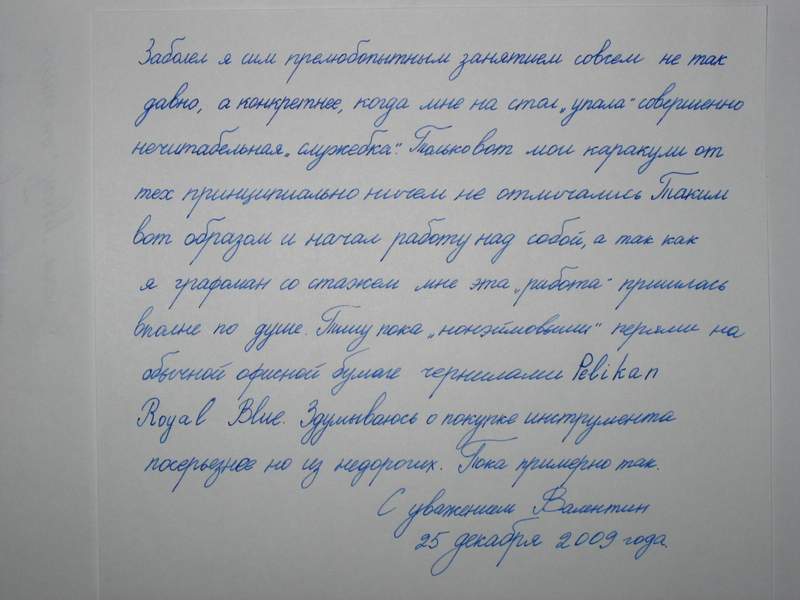 Заболел я сим прелюбопытным занятием совсем не так
давно, а конкретнее, когда мне на стол „упала" совершенно
нечитабельная „служебка". Только вот мои каракули от
тех принципиально ничем не отличались Таким
вот образом и начал работу над собой, а так как
я графоман со стажем мне эта „работа" пришлась
вполне по душе. Пишу пока „нонэймовыми" перьями на
обычной офисной бумаге чернилами Pelikan
Royal Blue. Здумываюсь о покупке инструмента
посерьезнее но из недорогих. Пока примерно так.
С уважением Валентин
25 декабря 2009 года.